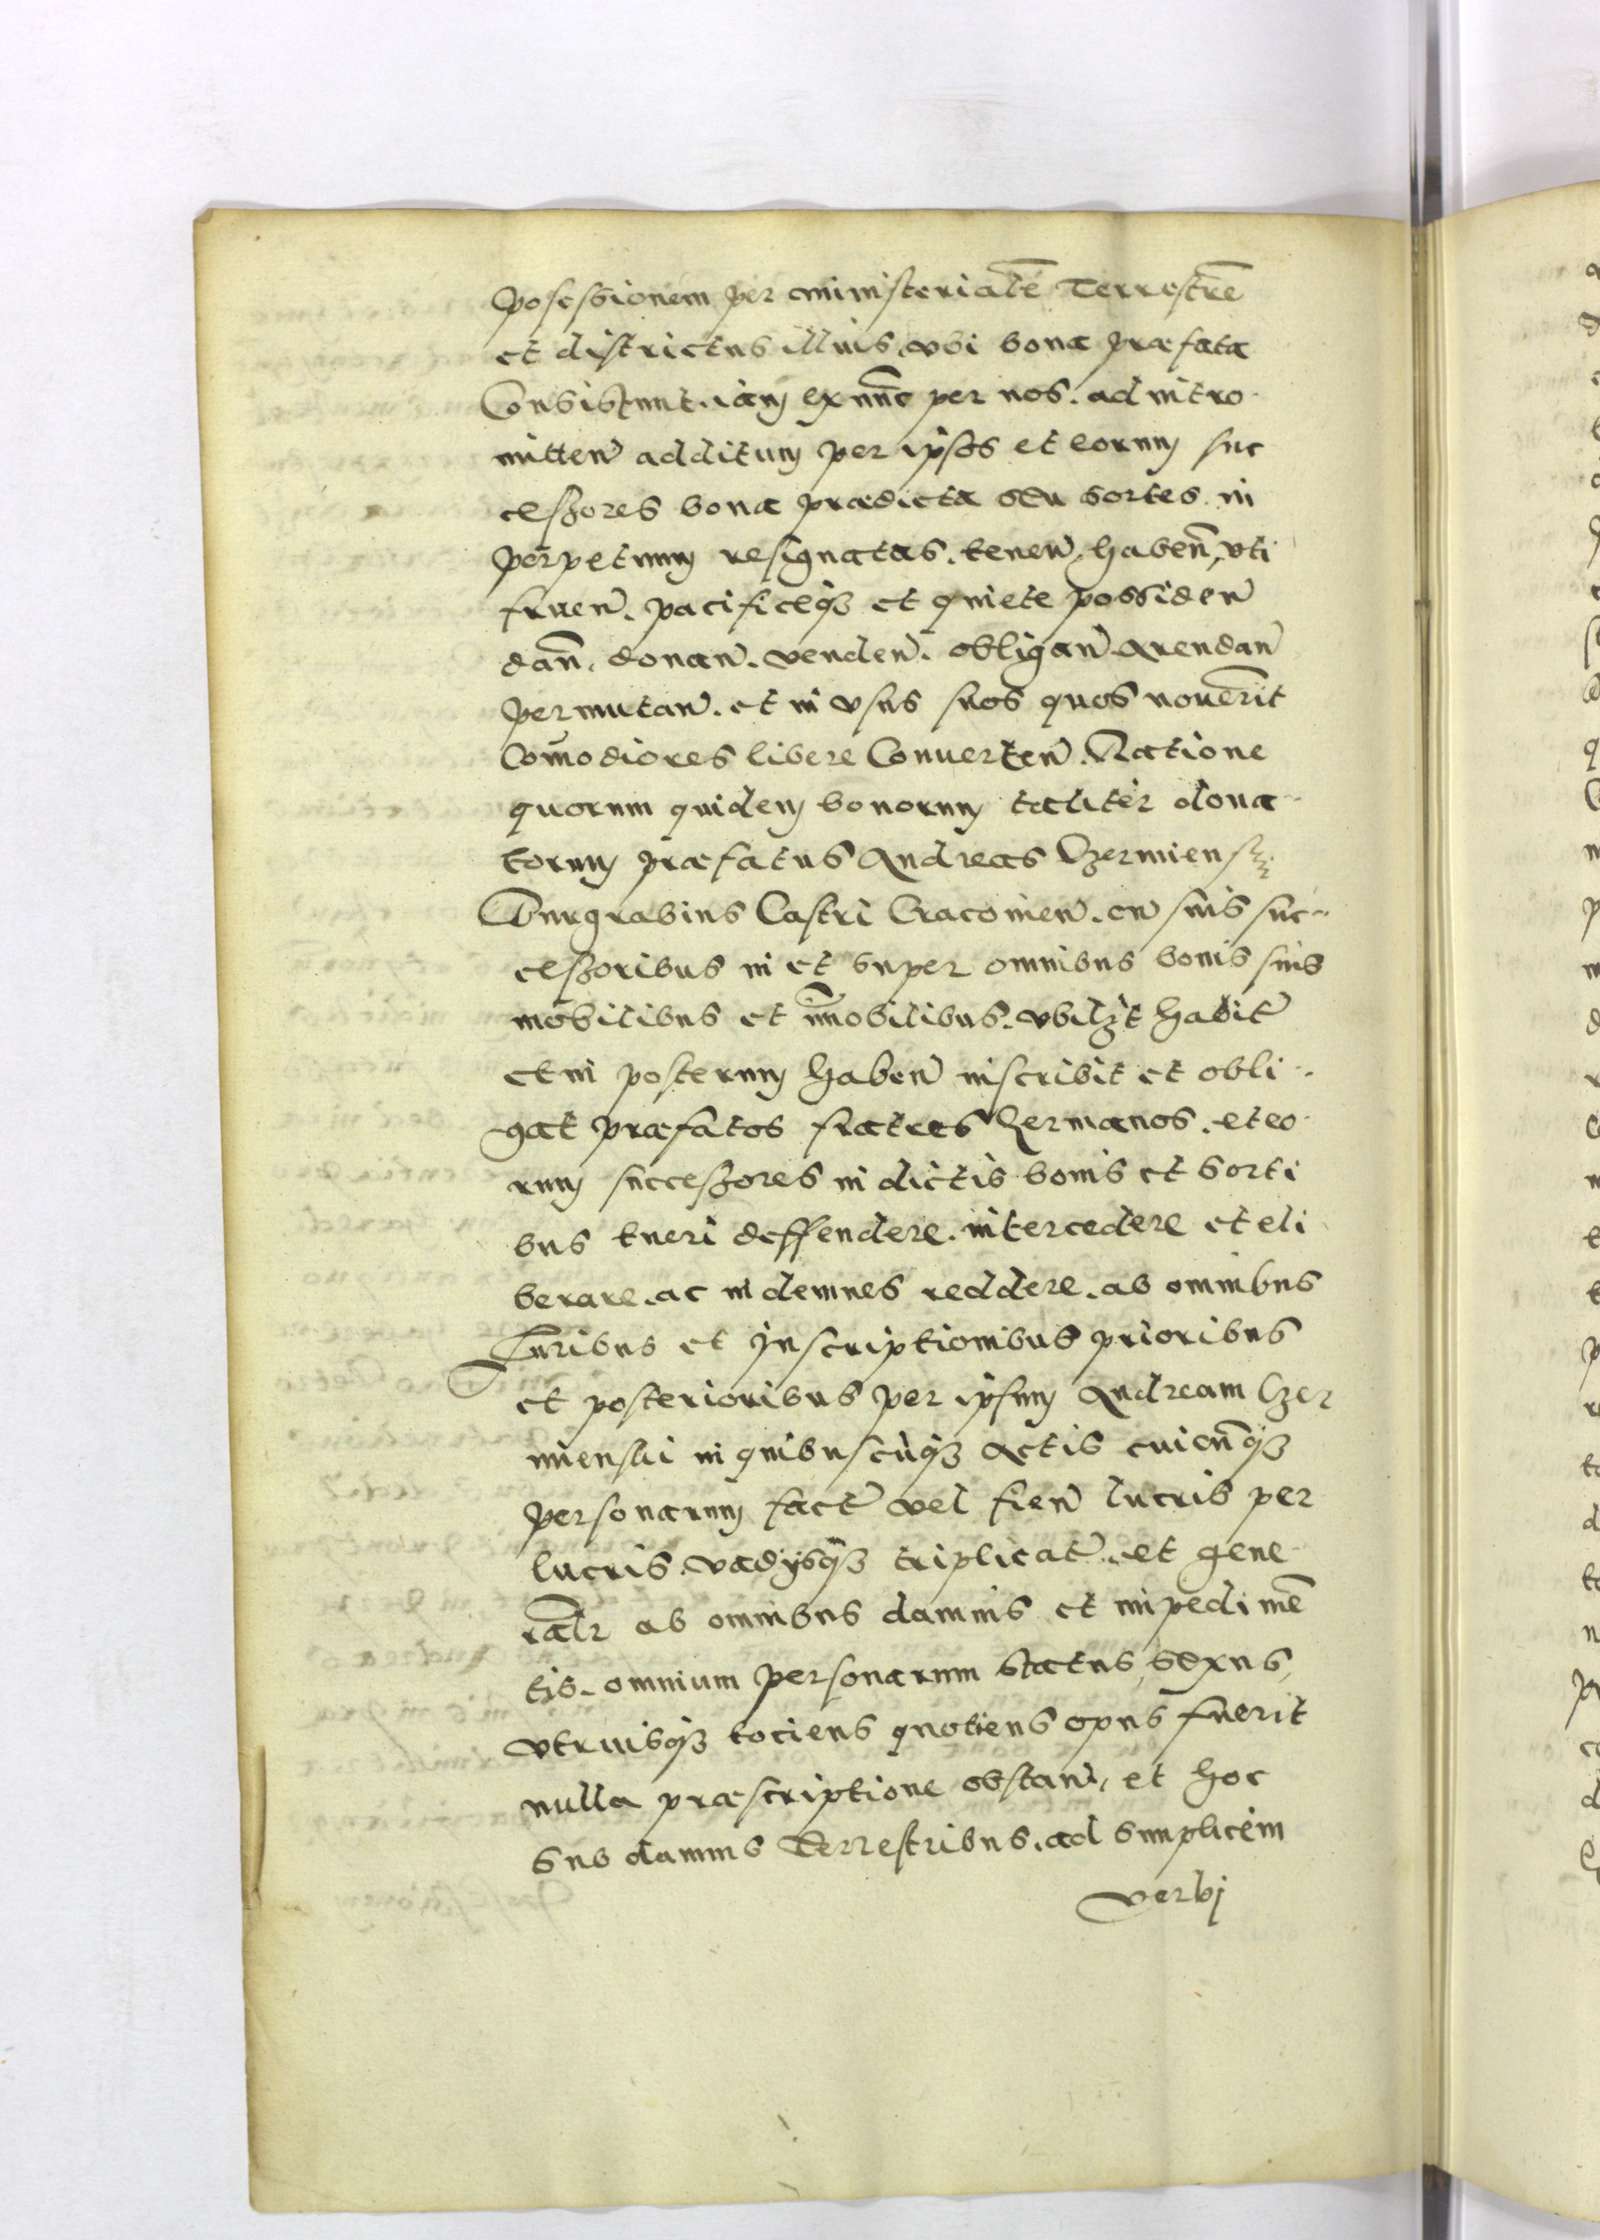 possessionem per ministerialē Terrestrē
et districtus illius, vbi bona præfata
Consistunt. iam exnūc per nos. ad intro
mitteñ additum per ipsos et eorum suc
cessores bona prædicta seu sortes in
perpetuum resignatas. teneñ. habeñ, vti
frueñ. pacificeqȝ et quiete possideñ
dañ, donañ. vendeñ. obligañ. Arendañ
permutañ. et in vsus suos quos nouerit
Com̄odiores libere Conuerteñ. Ratione
quorum quidem bonorum taliter dona-
torum præfatus Andreas Czermiensķ
Burgrabius Castri Cracouieñ. cū suis suc-
cessoribus in et super omnibus bonis suis
mobilibus et im̄obilibus. vbilȝt habit̃
et in posterum habeñ inscribit et obli-
gat præfatos fratres Germanos. et eo
rum successores in dictis bonis et sorti
bus tueri deffendere. intercedere et eli
berare. ac indemnes reddere. ab omnibus
Iuribus et Inscriptionibus prioribus
et posterioribus per ipsum Andream Czer
mienski in quibuscūqȝ Actis cuicūqȝ
personarum fact̃ vel fieñ lucris per
lucris. vadysqȝ triplicat̃. et gene
ralr̃ ab omnibus damnis et impedimē
tis. omnium personarum status, sexus,
vtriusqȝ tociens quotiens opus fuerit
nulla præscriptione obstañ, et hoc
sub damnis Terrestribus. ad simplicem
verbj